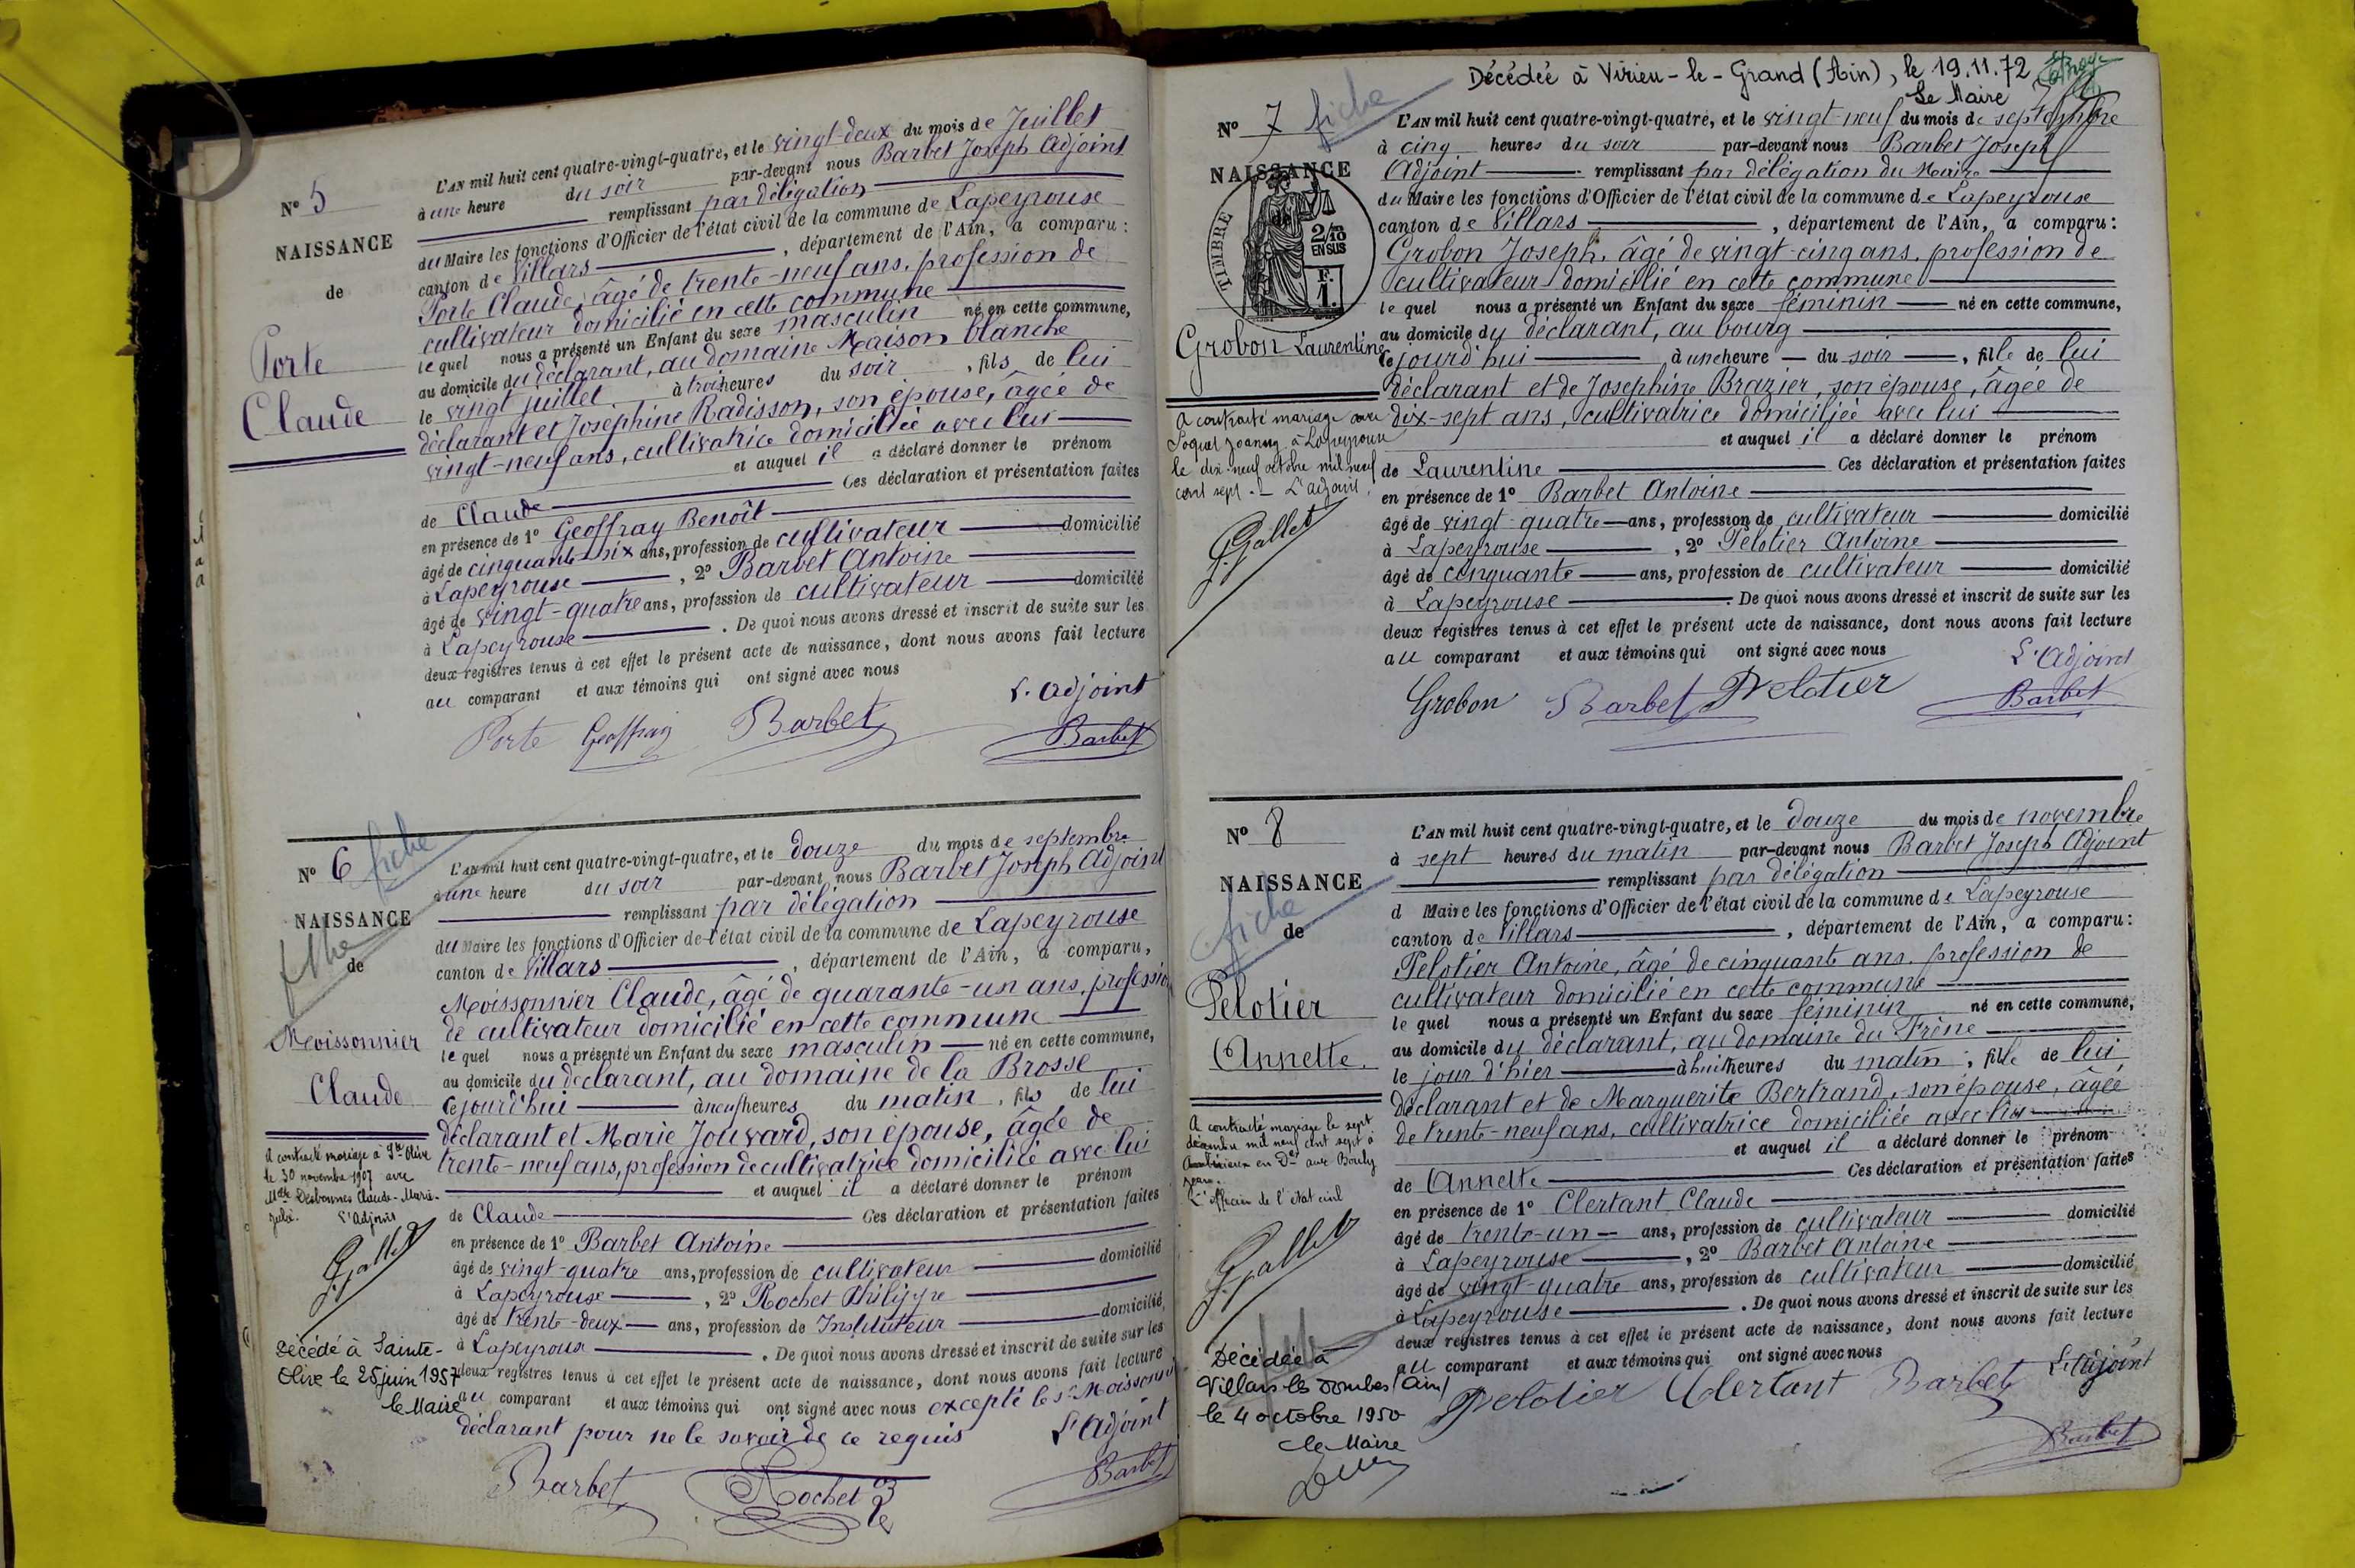 N° 5
NAISSANCE
de
Porte
Claude
L'AN mil huit cent quatre-vingt-quatre, et le vingt-deux du mois de Juillet
à une heure du soir par-devant nous Barbet Joseph Adjoint
remplissant par délégation
du Maire les fonctions d'Officier de l'état civil de la commune de Lapeyrouse
canton de Villars, département de l'Ain, a comparu :
Porte Claude, âgé de trente-neuf ans, profession de
cultivateur domicilié en cette commune
lequel nous a présenté un Enfant du sexe masculin né en cette commune,
au domicile du déclarant, au domaine Maison blanche
le vingt juillet à trois heures du soir, fils de lui
déclarant et Joséphine Radisson, son épouse, âgée de
vingt-neuf ans, cultivatrice domiciliée avec lui
et auquel il a déclaré donner le prénom
de Claude Ces déclaration et présentation faites
en présence de 1° Geoffray Benoît
âgé de cinquante-six ans, profession de cultivateur domicilié
à Lapeyrouse, 2° Barbet Antoine
âgé de vingt-quatre ans, profession de cultivateur domicilié
à Lapeyrouse. De quoi nous avons dressé et inscrit de suite sur les
deux registres tenus à cet effet le présent acte de naissance, dont nous avons fait lecture
au comparant et aux témoins qui ont signé avec nous
L'Adjoint
Porte Geoffray Barbet Barbet
N° 6 fiche
NAISSANCE
de
Moissonnier
Claude
A contracté mariage à Ste Olive
le 30 novembre 1907 avec
Mlle Desbonnes Claude-Marie-
Julie. L'Adjoint
J. Gallet
Décédé à Sainte-
Olive le 25 juin 1957
le Maire
L'AN mil huit cent quatre-vingt-quatre, et le douze du mois de septembre
à une heure du soir par-devant nous Barbet Joseph Adjoint
remplissant par délégation
du Maire les fonctions d'Officier de l'état civil de la commune de Lapeyrouse
canton de Villars, département de l'Ain, a comparu,
Moissonnier Claude, âgé de quarante-un ans, profession
de cultivateur domicilié en cette commune
lequel nous a présenté un Enfant du sexe masculin né en cette commune,
au domicile du déclarant, au domaine de la Brosse
Cejourd'hui à neuf heures du matin, fils de lui
déclarant et Marie Jouvard, son épouse, âgée de
trente-neuf ans, profession de cultivatrice domiciliée avec lui
et auquel il a déclaré donner le prénom
de Claude Ces déclaration et présentation faites
en présence de 1° Barbet Antoine
âgé de vingt-quatre ans, profession de cultivateur domicilié
à Lapeyrouse, 2° Rochet Philippe
âgé de trente-deux ans, profession de Instituteur domicilié,
à Lapeyrouse. De quoi nous avons dressé et inscrit de suite sur les
deux registres tenus à cet effet le présent acte de naissance, dont nous avons fait lecture
au comparant et aux témoins qui ont signé avec nous excepté le sr Moissonnier
déclarant pour ne le savoir de ce requis L'Adjoint
Barbet Rochet Barbet
Décédée à Virieu-le-Grand (Ain), le 19.11.72
Le Maire
N° 7 fiche
NAISSANCE
TIMBRE
2/10
EN SUS
F.
1.
Grobon Laurentine
A contracté mariage avec
Poquet Joanny à Lapeyrouse
le dix-neuf octobre mil neuf
cent sept. L'adjoint.
J. Gallet
L'AN mil huit cent quatre-vingt-quatre, et le vingt-neuf du mois de septembre
à cinq heures du soir par-devant nous Barbet Joseph
Adjoint remplissant par délégation du Maire
du Maire les fonctions d'Officier de l'état civil de la commune de Lapeyrouse
canton de Villars, département de l'Ain, a comparu :
Grobon Joseph, âgé de vingt-cinq ans, profession de
cultivateur domicilié en cette commune
lequel nous a présenté un Enfant du sexe féminin né en cette commune,
au domicile du déclarant, au bourg
Cejourd'hui à une heure du soir, fille de lui
déclarant et de Josephine Brazier, son épouse, âgée de
dix-sept ans, cultivatrice domiciliée avec lui
et auquel il a déclaré donner le prénom
de Laurentine Ces déclaration et présentation faites
en présence de 1° Barbet Antoine
âgé de vingt-quatre ans, profession de cultivateur domicilié
à Lapeyrouse, 2° Pelotier Antoine
âgé de cinquante ans, profession de cultivateur domicilié
à Lapeyrouse. De quoi nous avons dressé et inscrit de suite sur les
deux registres tenus à cet effet le présent acte de naissance, dont nous avons fait lecture
au comparant et aux témoins qui ont signé avec nous
L'Adjoint
Grobon Barbet Pelotier Barbet
N° 8
NAISSANCE
fiche
de
Pelotier
Annette.
A contracté mariage le sept
décembre mil neuf cent sept à
en Des avec Bouly
Jean.
L'officier de l'état civil
J. Gallet
Décédée à
Villars les Dombes (Ain)
le 4 octobre 1950
le Maire
L'AN mil huit cent quatre-vingt-quatre, et le douze du mois de novembre
à sept heures du matin par-devant nous Barbet Joseph Adjoint
remplissant par délégation
d Maire les fonctions d'Officier de l'état civil de la commune de Lapeyrouse
canton de Villars, département de l'Ain, a comparu :
Pelotier Antoine, âgé de cinquante ans, profession de
cultivateur domicilié en cette commune
lequel nous a présenté un Enfant du sexe féminin né en cette commune,
au domicile du déclarant, au domaine du Frêne
le jour d'hier à huit heures du matin, fille de lui
déclarant et de Marguerite Bertrand, son épouse, âgée
de trente-neuf ans, cultivatrice domiciliée avec lui
et auquel il a déclaré donner le prénom
de Annette Ces déclaration et présentation faites
en présence de 1° Clertant Claude
âgé de trente-un ans, profession de cultivateur domicilié
à Lapeyrouse, 2° Barbet Antoine
âgé de vingt-quatre ans, profession de cultivateur domicilié
à Lapeyrouse. De quoi nous avons dressé et inscrit de suite sur les
deux registres tenus à cet effet le présent acte de naissance, dont nous avons fait lecture
au comparant et aux témoins qui ont signé avec nous
L'Adjoint
Pelotier Clertant Barbet
Barbet